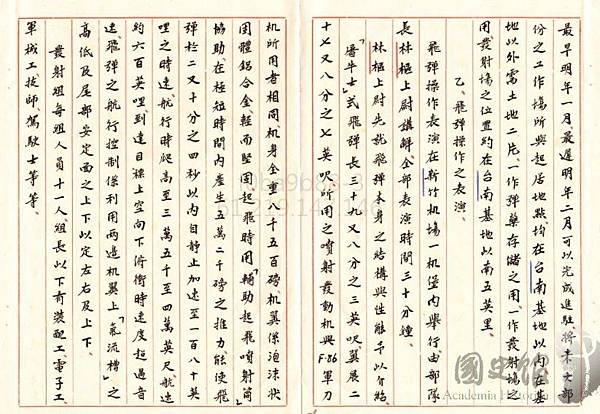 最早明年一月最遲明年二月可以完成進駐將來大部
份之工作場所與起居地點均在台南基地以內在基
地以外需土地二片一作彈藥存儲之用一作發射場之
用發射場之位置約在台南基地以南五英里、
乙、飛彈操作之表演、
飛彈操作表演在新竹机場一机堡內舉行由部隊
長林極上尉講解全部表演時間三十分鐘、
林極上尉先就飛彈本身之結構與性能予以介紹
「屠牛士」式飛彈長三十九又八分之三英呎翼展二
十七又八分之七英呎所用之噴射發動机與F-86軍刀
机所用者相同机身全重八千五百磅机翼係泡沫狀
固體鋁合金輕而堅固起飛時用「輔助起飛噴射筒」
協助在極短時間內產生五萬二千磅之推力能使飛
彈於二又十分之四秒以內自靜止加速至一百八十英
哩之時速航行時爬高至三萬五千至四萬英尺航速
約六百英哩到達目標上空向下俯衝時速度超過音
速飛彈之航行控制係利用兩邊机翼上「氣流槽」之
高低及尾部安定面之上下以定左右及上下、
發射組每組人員十一人組長以下有裝配工電子工
軍械工技師駕駛士等等、
國史館
Academia Historica